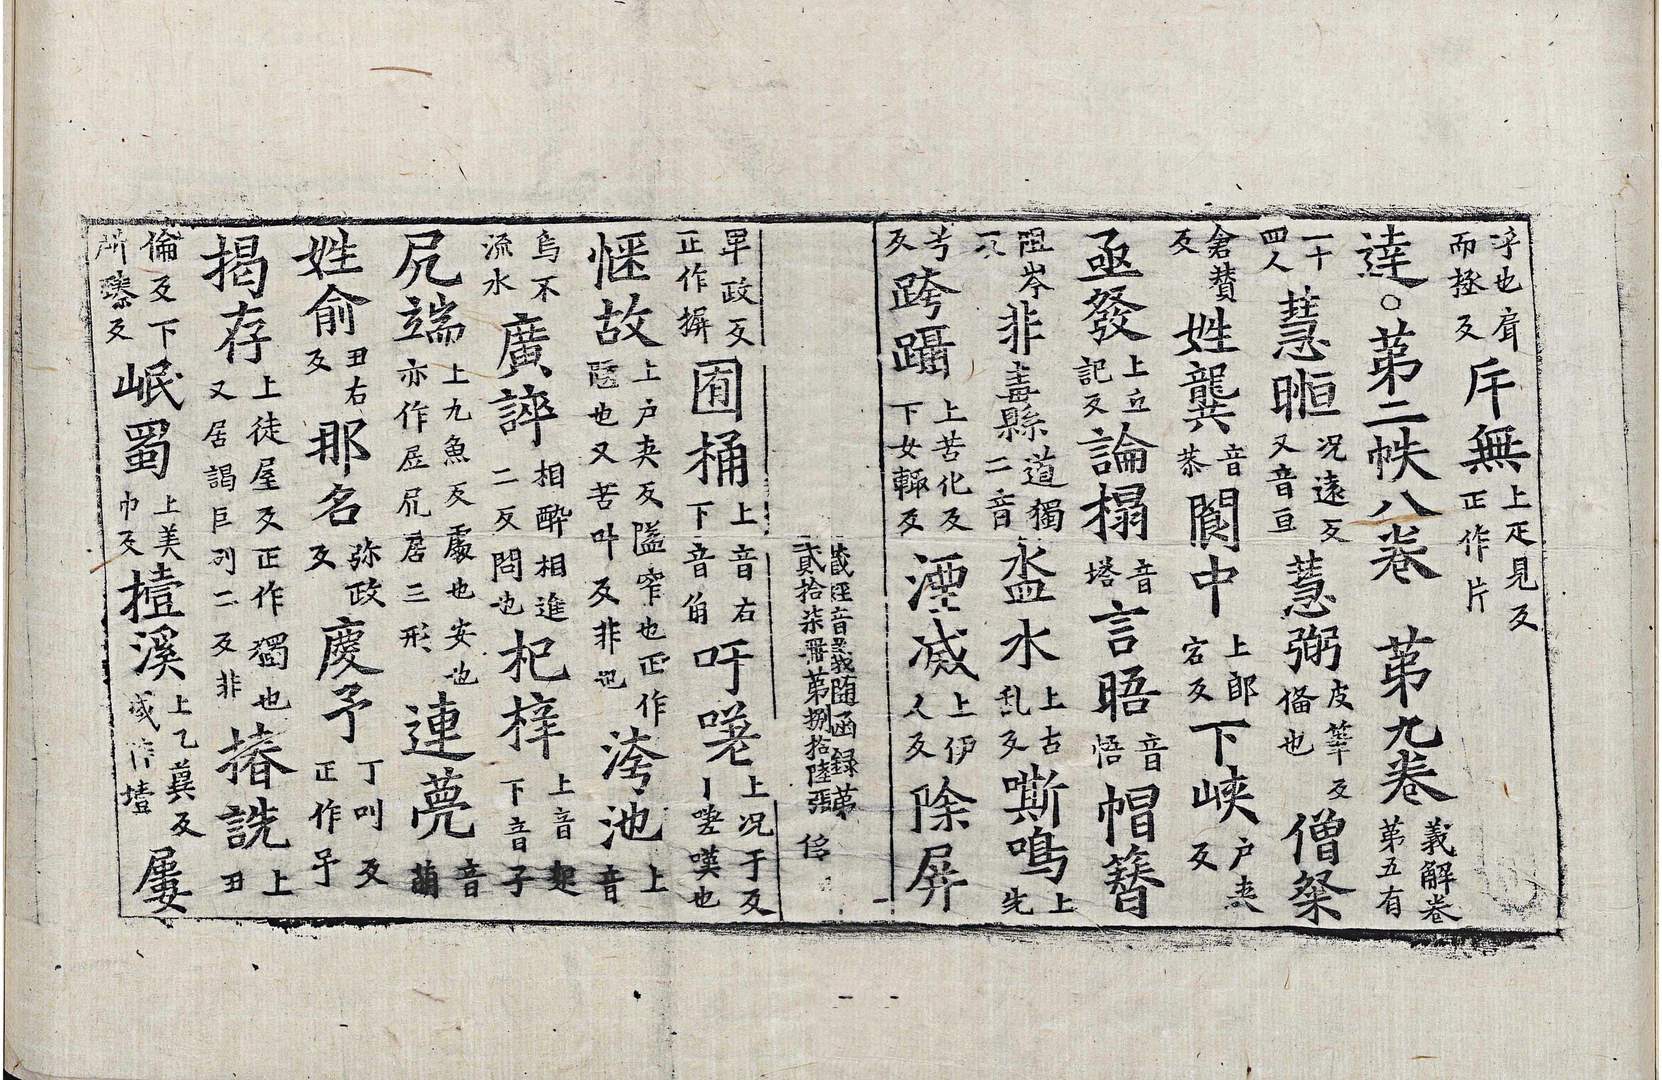 浮也肩而拯反斥無上疋見反正作片
達○苐二帙八卷 苐九卷義解卷苐五有
一十四人慧暅况遠反又音亘慧弼皮筆反偹也僧粲
倉賛反姓龔音恭閬中上郎宕反下峽户夹反
亟發上丘記反論榻音塔言晤音悟帽簪
阻岑反非毒縣道獨二音盥水上古乱反嘶鳴上先
兮反跨躡上苦化反下女輙反湮滅上伊人反除屏
藏經音義随函録苐貳拾柒冊苐捌拾陸張 侈
畢政反正作摒囿桶上音右下音甬吁嗟上况于反下嗟嘆也
惬故上户夹反隘窄也正作陿也又苦叶反非也洿池上音
烏不流水廣誶相醉相進二反問也杞梓上音起下音子
凥端上九魚反處也安也亦作凥凥居三形連甍音萌
姓俞丑右反那名弥政反慶予丁叫反正作孑
揭存上徒屋反正作獨也又居謁巨列二反非摏詵上丑
倫反下所臻反岷蜀上美巾反壹溪上乙冀反或作壇屢